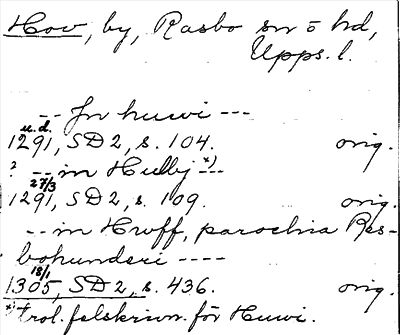 Hov, by, Rasbo sn o hd,
Upps. l.
-- In huwi ---
u.d.
1291, SD 2, s. 104. orig.
? -- in Hulbj x) ---
27/3
1291, SD 2, s. 109. orig.
-- in Hwff, parochia Ræs-
bohundæri ----
18/1
1305, SD 2, s. 436. orig.
x) trol. felskrivn. för Huwi.